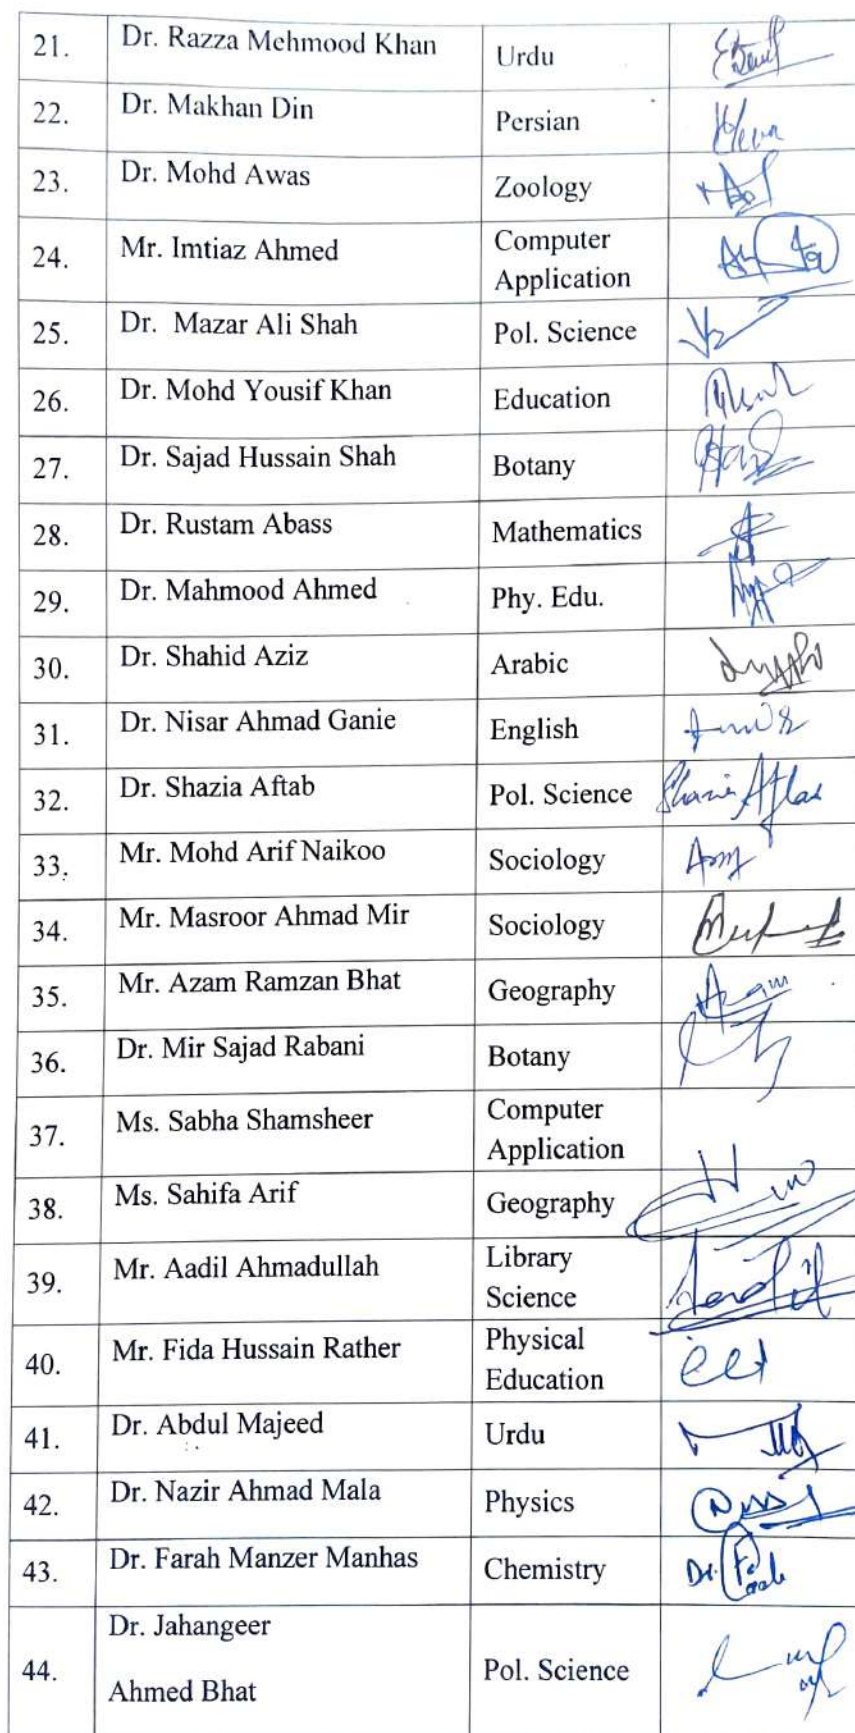 21. Dr. Razza Mehmood Khan Urdu
22. Dr. Makhan Din Persian
23. Dr. Mohd Awas Zoology
24. Mr. Imtiaz Ahmed Computer
Application
25. Dr. Mazar Ali Shah Pol. Science
26. Dr. Mohd Yousif Khan Education
27. Dr. Sajad Hussain Shah Botany
28. Dr. Rustam Abass Mathematics
29. Dr. Mahmood Ahmed Phy. Edu.
30. Dr. Shahid Aziz Arabic
31. Dr. Nisar Ahmad Ganie English
32. Dr. Shazia Aftab Pol. Science
33. Mr. Mohd Arif Naikoo Sociology
34. Mr. Masroor Ahmad Mir Sociology
35. Mr. Azam Ramzan Bhat Geography
36. Dr. Mir Sajad Rabani Botany
37. Ms. Sabha Shamsheer Computer
Application
38. Ms. Sahifa Arif Geography
39. Mr. Aadil Ahmadullah Library
Science
40. Mr. Fida Hussain Rather Physical
Education
41. Dr. Abdul Majeed Urdu
42. Dr. Nazir Ahmad Mala Physics
43. Dr. Farah Manzer Manhas Chemistry Dr.
44. Dr. Jahangeer
Ahmed Bhat Pol. Science